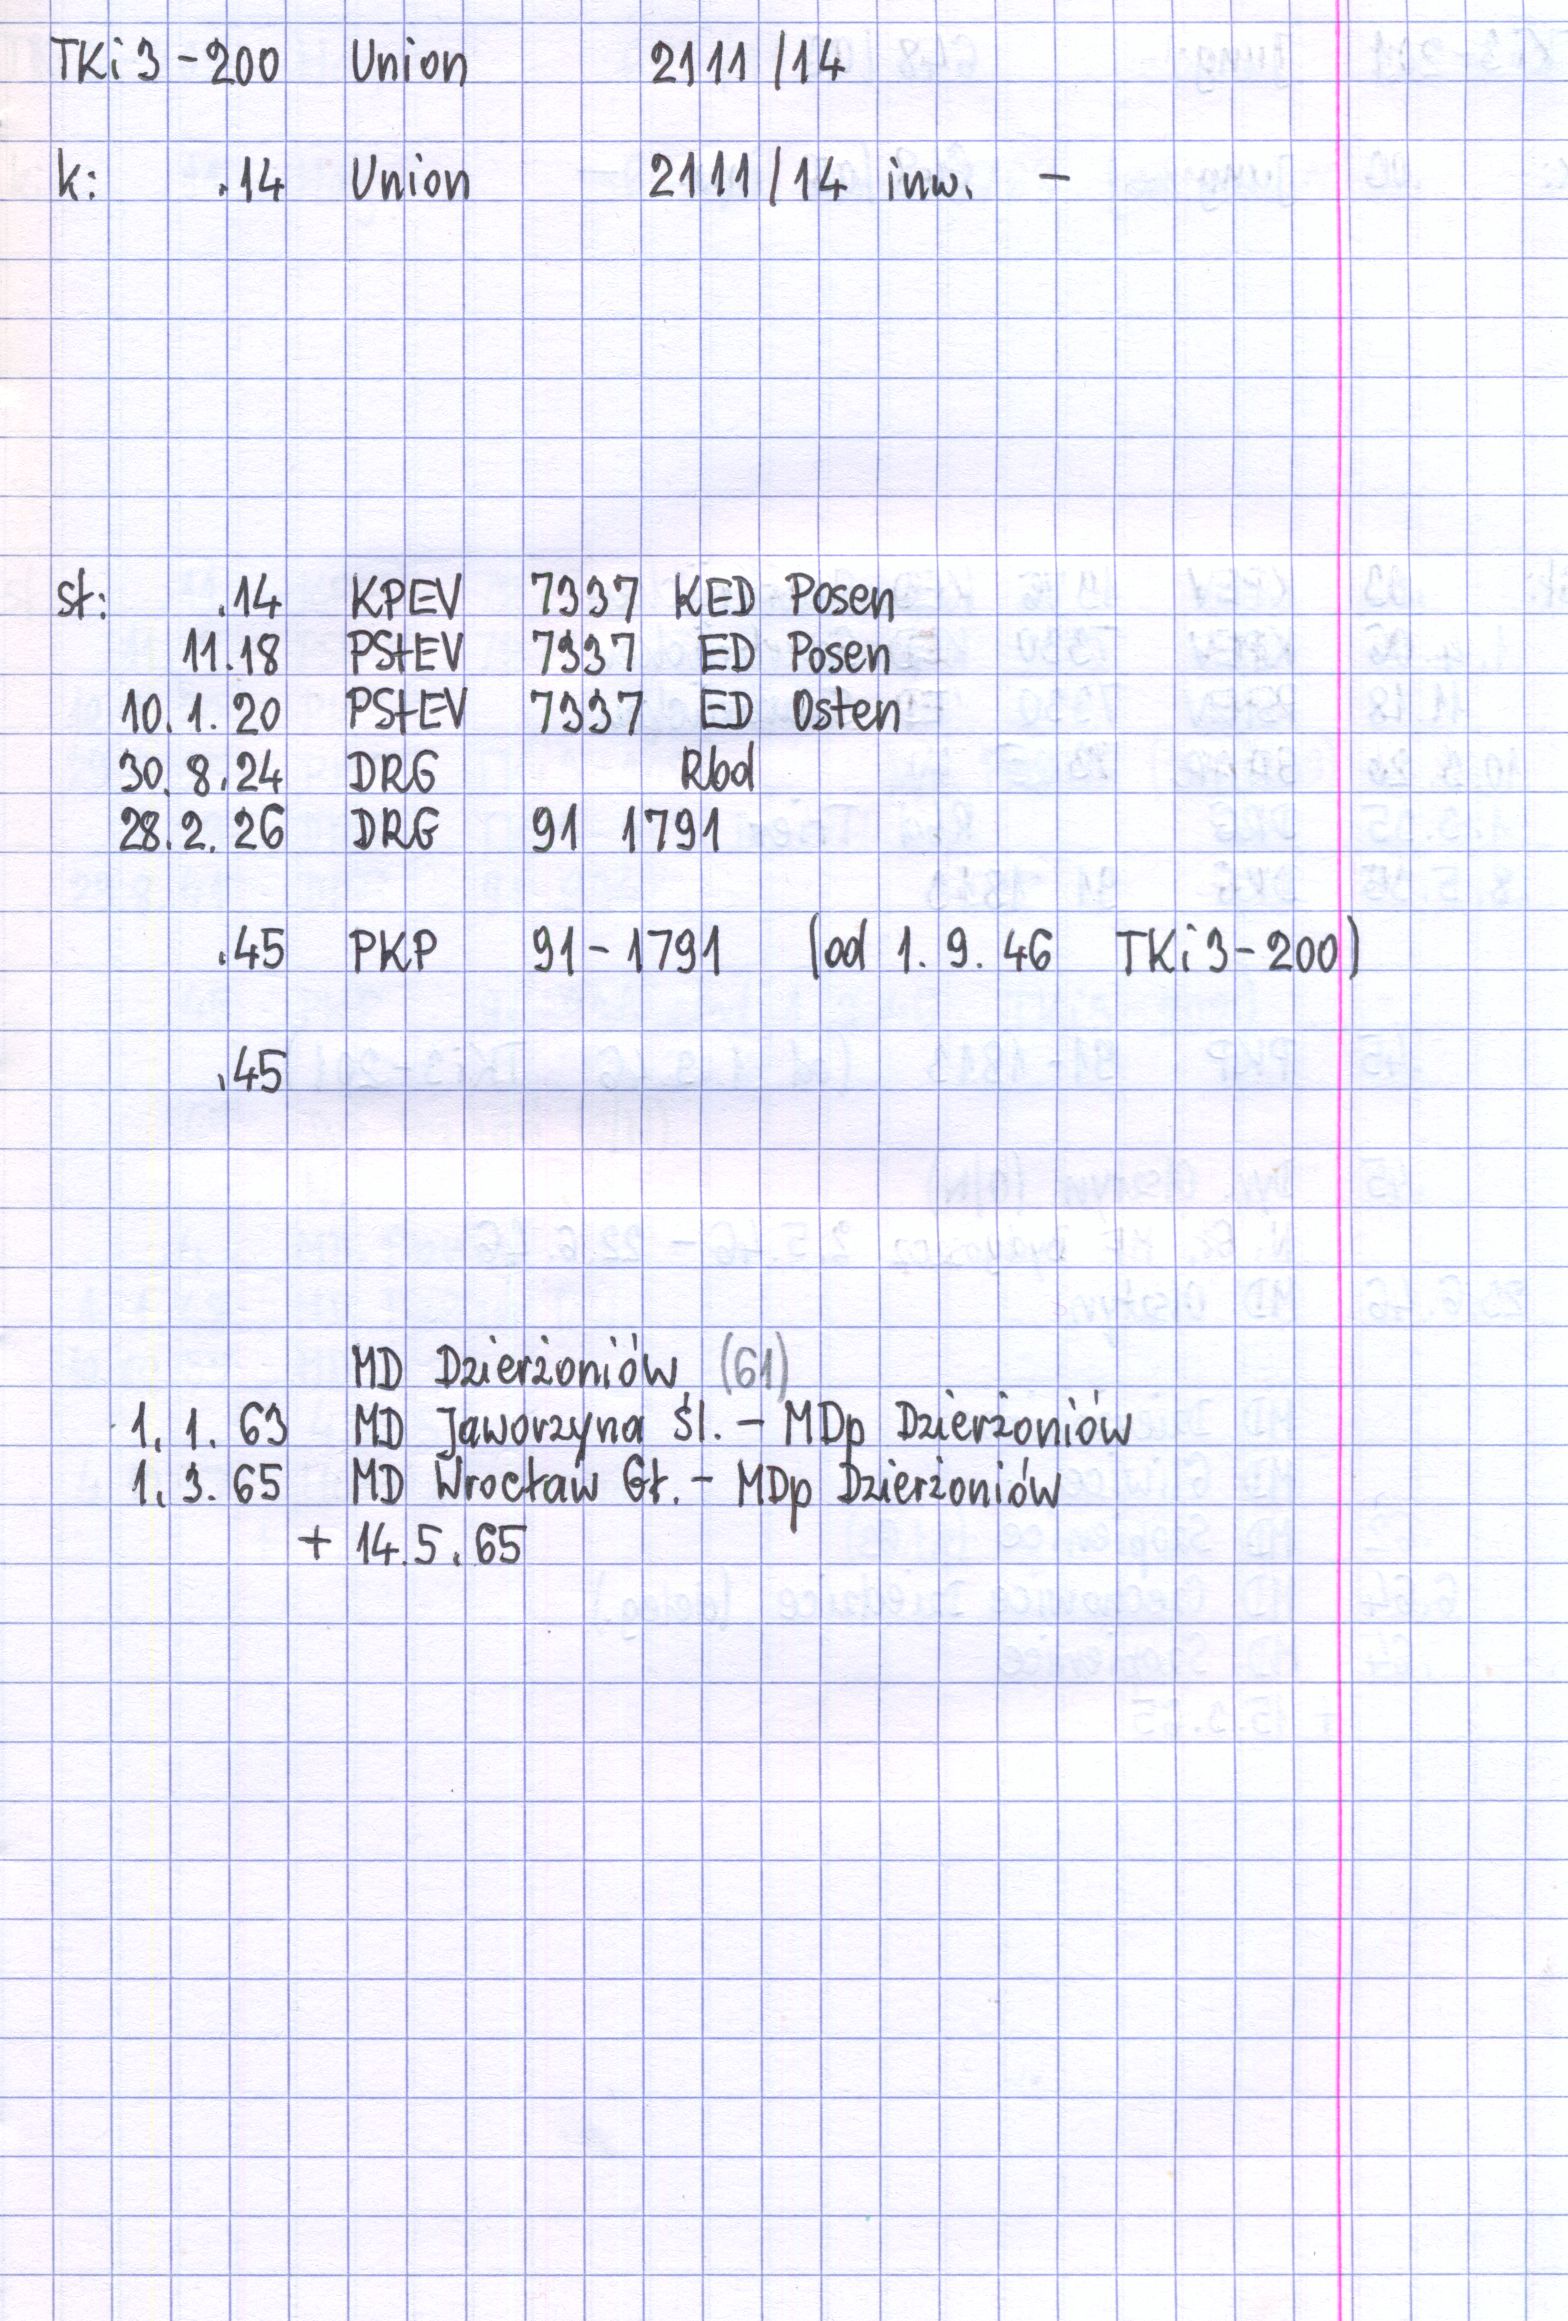 TKi3-200 Union 2111/14
k: .14 Union 2111/14 inw. -
st: .14 KPEV 7337 KED Posen
11.18 PStEV 7337 ED Posen
10.1.20 PStEV 7337 ED Osten
30.8.24 DRG Rbd
28.2.26 DRG 91 1791
.45 PKP 91-1791 (od 1.9.46 TKi3-200)
.45
MD Dzierżoniów (61)
1.1.63 MD Jaworzyna Śl. - MDp Dzierżoniów
1.3.65 MD Wrocław Gł. - MDp Dzierżoniów
+ 14.5.65